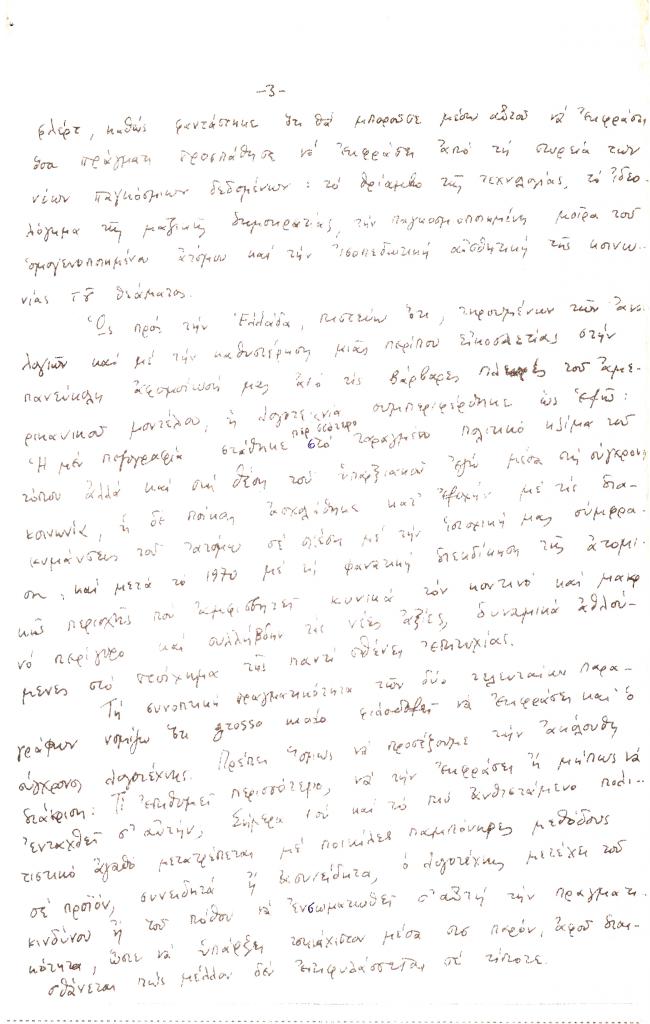 -3-
φλέρτ, καθώς φαντάστηκε ὅτι θά μποροῦσε μέσῳ αὐτοῦ νά ἐκφράσῃ
ὅσα πράγματι προσπάθησε νά ἐκφράσῃ ἀπό τή σωρεία τῶν
νέων παγκόσμιων δεδομένων: τό θρίαμβο τῆς τεχνολογίας, τό ἰδεο-
λόγημα τῆς μαζικῆς δημοκρατίας, τήν παγκοσμιοποιημένη μοῖρα τοῦ
ὁμογενοποιημένου ἀτόμου καί τήν ἰσοπεδωτική αἰσθητική τῆς κοινω-
νίας τοῦ θεάματος.
Ὡς πρός τήν Ἑλλάδα, πιστεύω ὅτι, τηρουμένων τῶν ἀνα-
λογιῶν καί μέ τήν καθυστέρηση μιᾶς περίπου εἰκοσαετίας στήν
πανεύκολη ἀφομοίωσή μας ἀπό τίς βάρβαρες πλευρές τοῦ ἀμε-
ρικανικοῦ μοντέλου, ἡ λογοτεχνία συμπεριφέρθηκε ὡς ἑξῆς:
Ἡ μέν πεζογραφία στάθηκε περισσότερο στό ταραγμένο πολιτικό κλίμα τοῦ
τόπου ἀλλά καί στή θέση τοῦ ὑπαρξιακοῦ ἐγώ μέσα στή σύγχρονη
κοινωνία, ἡ δέ ποίηση ἀσχολήθηκε κατ' ἐξοχήν μέ τίς δια-
κυμάνσεις τοῦ ἀτόμου σέ σχέση μέ τήν ἱστορική μας σύμφρα-
ση· καί μετά τό 1970 μέ τή φανατική διεκδίκηση τῆς ἀτομι-
κῆς περιοχῆς πού ἀμφισβητεῖ κυνικά τόν κοντινό καί μακρ
νό περίγυρο καί συλλήβδην τίς νέες ἀξίες, δυναμικά ἀθλού-
μενες στό προσχημα τῆς παντί σθένει ἐπιτυχίας.
Τή συνοπτική πραγματικότητα τῶν δύο τελευταίων παρα-
γράφων νομίζω ὅτι grosso modo φιλοδοξεῖ νά ἐκφράσῃ καί ὁ
σύγχρονος λογοτέχνης. Πρέπει ὅμως νά προσέξουμε τήν ἀκόλουθη
διάκριση: Τί ἐπιθυμεῖ περισσότερο, νά τήν ἐκφράσῃ ἤ μήπως νά
ἐνταχθεῖ σ' αὐτήν; Σήμερα πού καί τό πιό ἀνθιστάμενο πολι-
τιστικό ἀγαθό μετατρέπεται μέ ποικίλες παμπόνηρες μεθόδους
σέ προϊόν, συνειδητά ἤ ἀσυνείδητα, ὁ λογοτέχνης μετέχει τοῦ
κινδύνου ἤ τοῦ πόθου νά ἐνσωματωθεῖ σ' αὐτή τήν πραγματι-
κότητα, ὥστε νά ὑπάρξει τουλάχιστον μέσα στό παρόν, ἀφοῦ διαι-
σθάνεται πώς μέλλον δέν ἐπιφυλάσσεται σέ τίποτε.